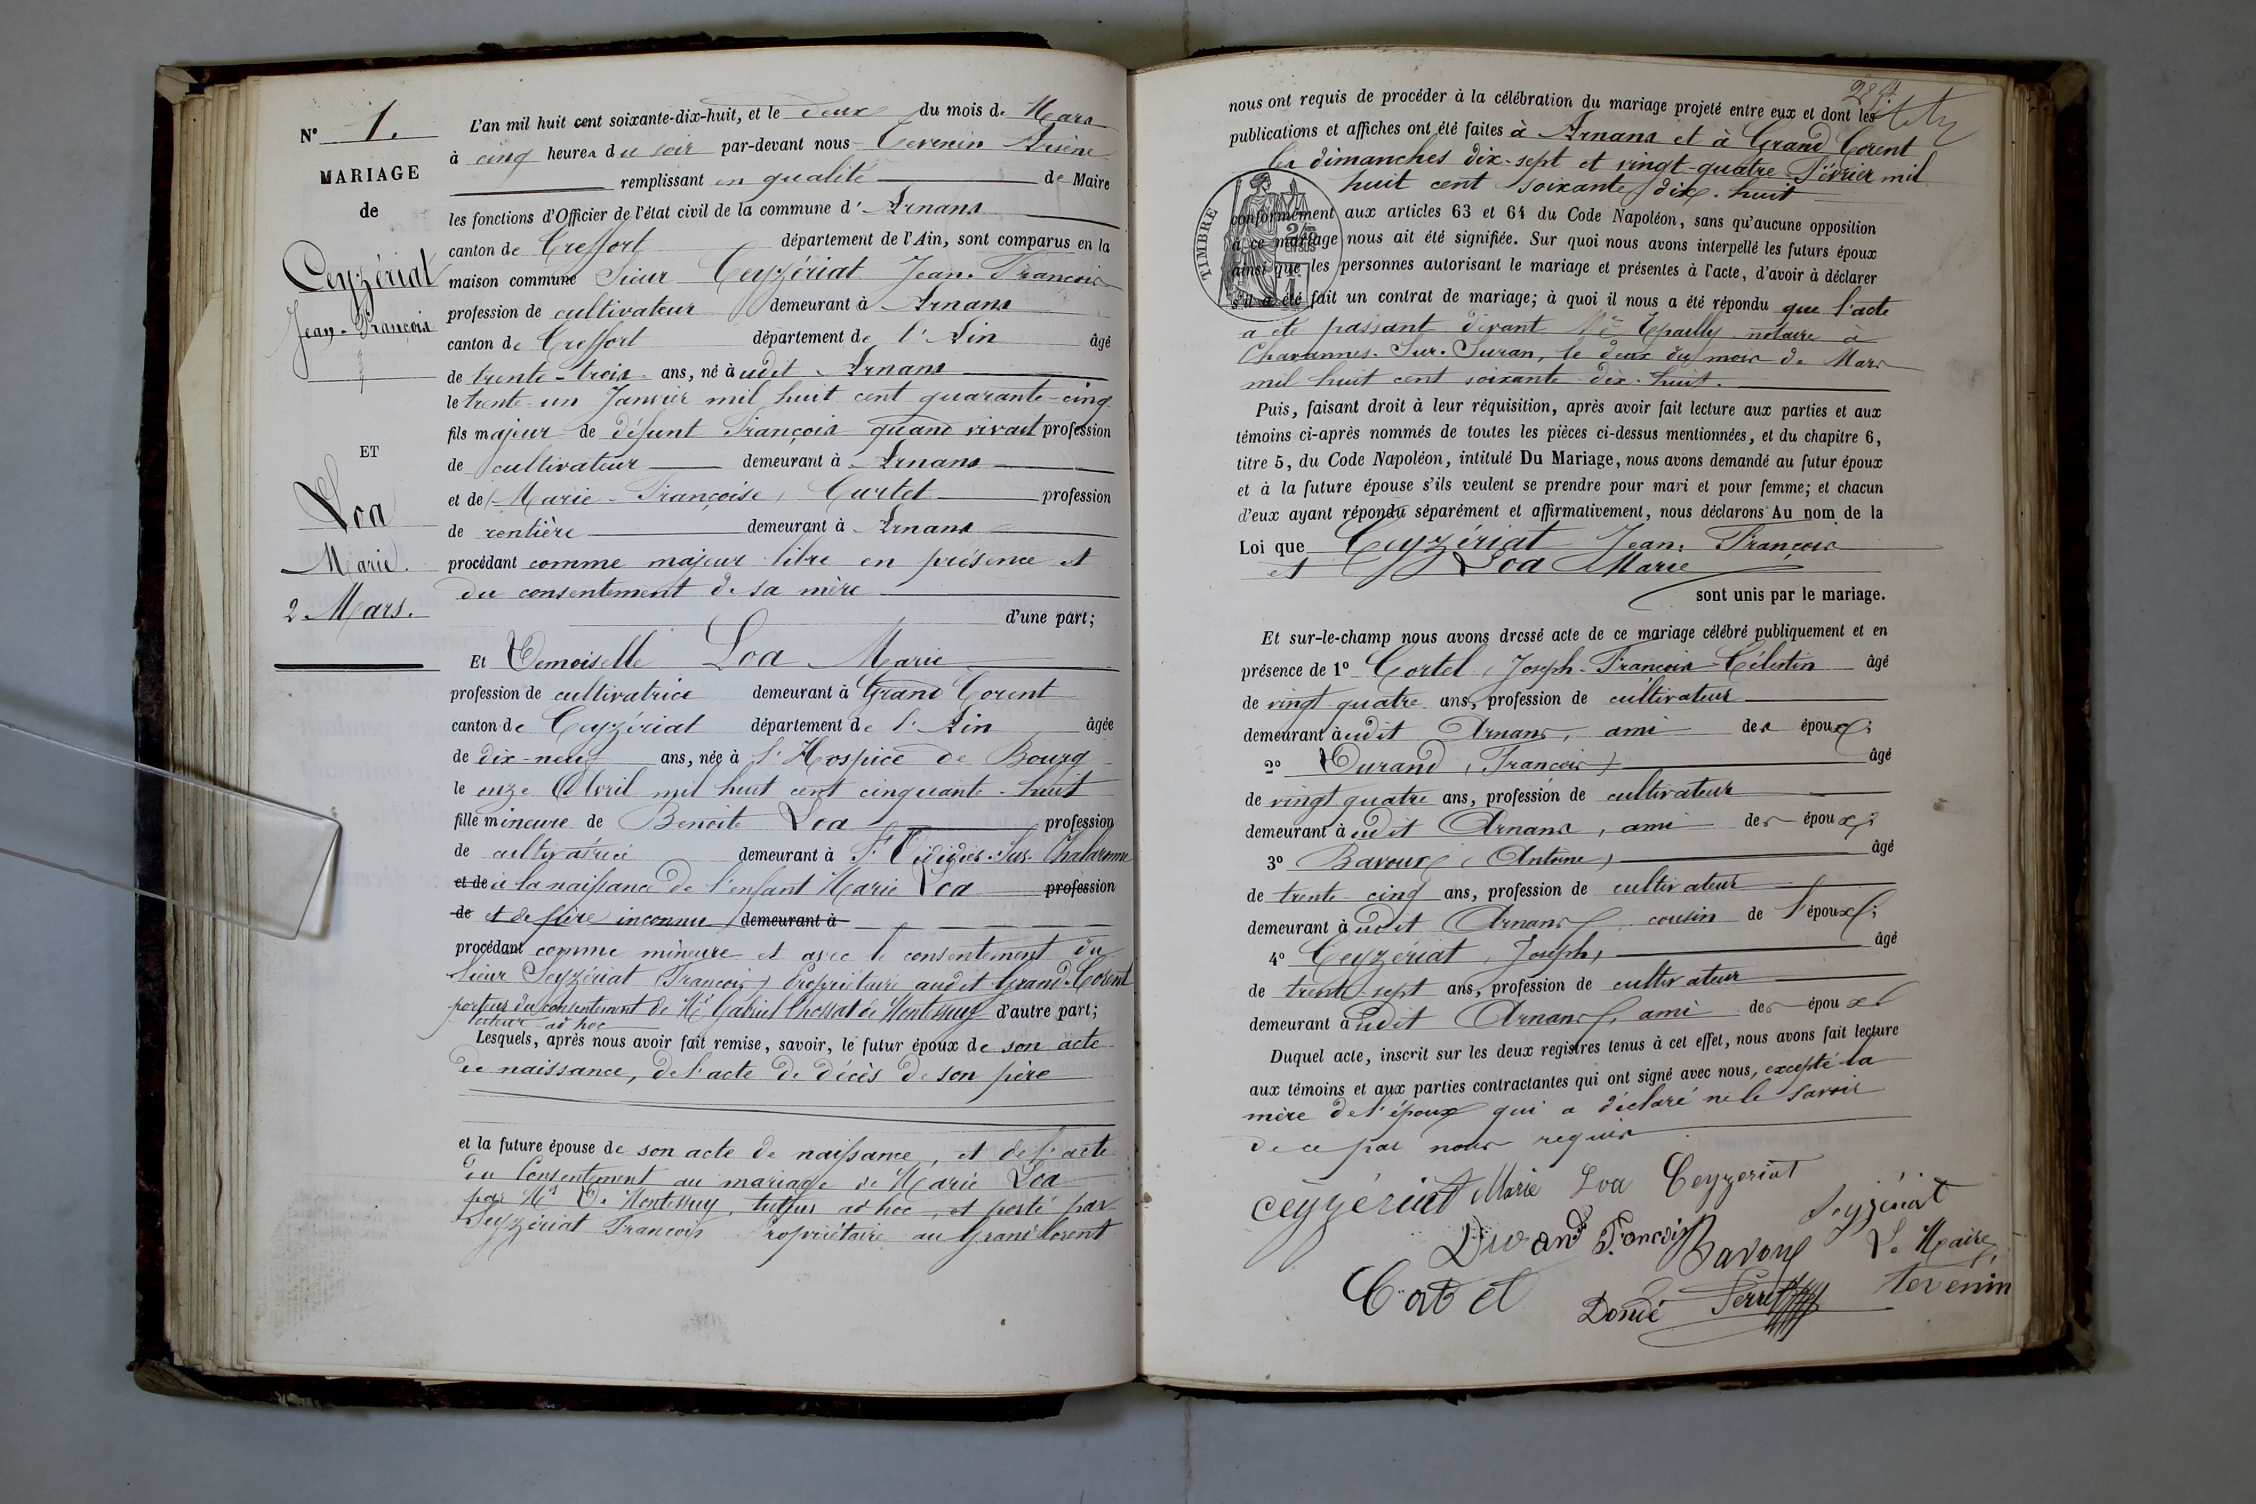 N° 1.
MARIAGE
de
Ceyzériat
Jean-François
ET
Loa
Marie.
2 Mars.
L'an mil huit cent soixante-dix-huit, et le deux du mois de Mars
à cinq heures du soir par-devant nous Tevenin Arsène
remplissant en qualité de Maire
les fonctions d'Officier de l'état civil de la commune d'Arnans
canton de Treffort département de l'Ain, sont comparus en la
maison commune Sieur Ceyzériat Jean-François
profession de cultivateur demeurant à Arnans
canton de Treffort département de l'Ain âgé
de trente-trois ans, né à udit Arnans
le trente-un Janvier mil huit cent quarante-cinq
fils majeur de défunt François quand vivait profession
de cultivateur demeurant à Arnans
et de Marie-Françoise Curtet profession
de rentière demeurant à Arnans
procédant comme majeur libre en présence et
du consentement de sa mère
d'une part;
Et Demoiselle Loa Marie
profession de cultivatrice demeurant à Grand Corent
canton de Ceyzériat département de l'Ain âgée
de dix-neuf ans, née à l'Hospice de Bourg
le onze Avril mil huit cent cinquante-huit
fille mineure de Benoite Loa profession
de cultivatrice demeurant à St Didier-Sur-Chalaronne
et de à la naissance de l'enfant Marie Loa profession
de et de père inconnu demeurant à
procédant comme mineure et avec le consentement du
Sieur Seyzériat François, Propriétaire audit Grand-Corent
porteur du consentement de Mr Gabriel Chossat de Montessuy d'autre part;
tuteur ad hoc
Lesquels, après nous avoir fait remise, savoir, le futur époux de son acte
de naissance, de l'acte de décès de son père
et la future épouse de son acte de naissance, et de l'acte
du Consentement au mariage de Marie Loa
par Mr De Montessuy, tuteur ad hoc, et porté par
Seyzériat François Propriétaire au Grand Corent
nous ont requis de procéder à la célébration du mariage projeté entre eux et dont les
publications et affiches ont été faites à Arnans et à Grand Corent
les dimanches dix-sept et vingt-quatre Février mil
huit cent soixante dix-huit
TIMBRE
conformément aux articles 63 et 64 du Code Napoléon, sans qu'aucune opposition
à ce mariage nous ait été signifiée. Sur quoi nous avons interpellé les futurs époux
ainsi que les personnes autorisant le mariage et présentes à l'acte, d'avoir à déclarer
s'il a été fait un contrat de mariage; à quoi il nous a été répondu que l'acte
a été passant devant Me notaire à
Chavannes-Sur-Suran, le deux du mois de Mars
mil huit cent soixante-dix-huit.
Puis, faisant droit à leur réquisition, après avoir fait lecture aux parties et aux
témoins ci-après nommés de toutes les pièces ci-dessus mentionnées, et du chapitre 6,
titre 5, du Code Napoléon, intitulé Du Mariage, nous avons demandé au futur époux
et à la future épouse s'ils veulent se prendre pour mari et pour femme; et chacun
d'eux ayant répondu séparément et affirmativement, nous déclarons Au nom de la
Loi que Ceyzériat Jean-François
et Loa Marie
sont unis par le mariage.
Et sur-le-champ nous avons dressé acte de ce mariage célébré publiquement et en
présence de 1° Cortel, Joseph-François-Célestin âgé
de vingt quatre ans, profession de cultivateur
demeurant à udit Arnans, ami des époux;
2° Durand, François, âgé
de vingt quatre ans, profession de cultivateur
demeurant à udit Arnans, ami des époux;
3° Bavoux, Antoine, âgé
de trente-cinq ans, profession de cultivateur
demeurant à udit Arnans, cousin de l'époux;
4° Ceyzériat, Joseph, âgé
de trente-sept ans, profession de cultivateur
demeurant à udit Arnans, ami des époux
Duquel acte, inscrit sur les deux registres tenus à cet effet, nous avons fait lecture
aux témoins et aux parties contractantes qui ont signé avec nous, excepté la
mère de l'époux qui a déclaré ne le savoir
de ce par nous requis
ceyzériat Marie Loa Ceyzeriat
Seyzériat
Durand François Bavoux Le Maire,
Cortel Dondé Perret tevenin